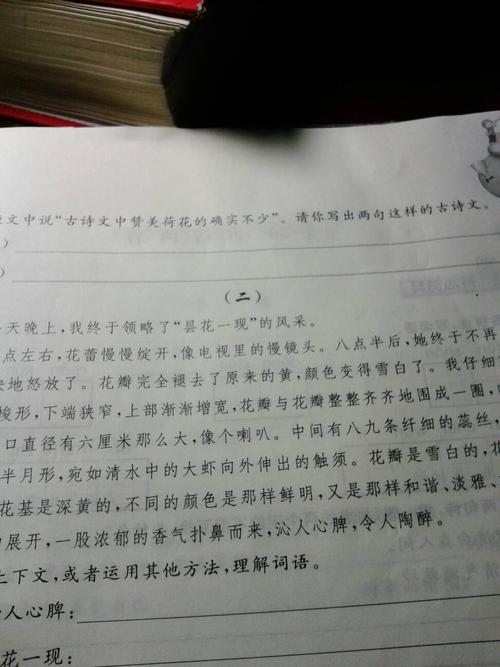 文中说“古诗文中赞美荷花的确实不少”。请你写出两句这样的古诗文。
）
）
（二）
天晚上，我终于领略了“昙花一现”的风采。
点左右，花蕾慢慢绽开，像电视里的慢镜头。八点半后，她终于不再
地怒放了。花瓣完全褪去了原来的黄，颜色变得雪白了。我仔细
梭形，下端狭窄，上部渐渐增宽，花瓣与花瓣整整齐齐地围成一圈，
口直径有六厘米那么大，像个喇叭。中间有八九条纤细的蕊丝，
半月形，宛如清水中的大虾向外伸出的触须。花瓣是雪白的，花
花基是深黄的，不同的颜色是那样鲜明，又是那样和谐、淡雅、
展开，一股浓郁的香气扑鼻而来，沁人心脾，令人陶醉。
上下文，或者运用其他方法，理解词语。
人心脾：
花一现：